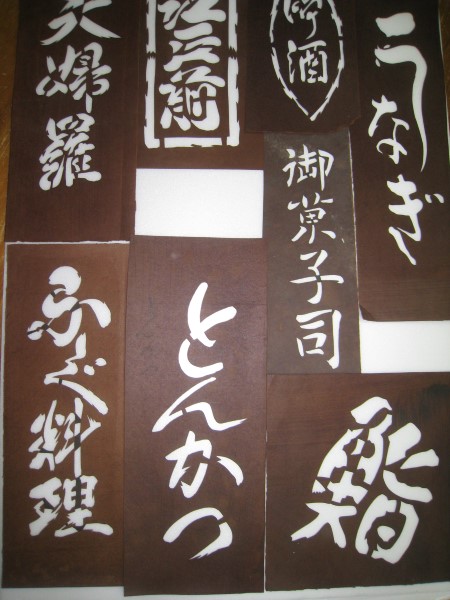 うなぎ
酒
江戸前
天婦羅
御菓子司
鮨
とんかつ
ふぐ料理